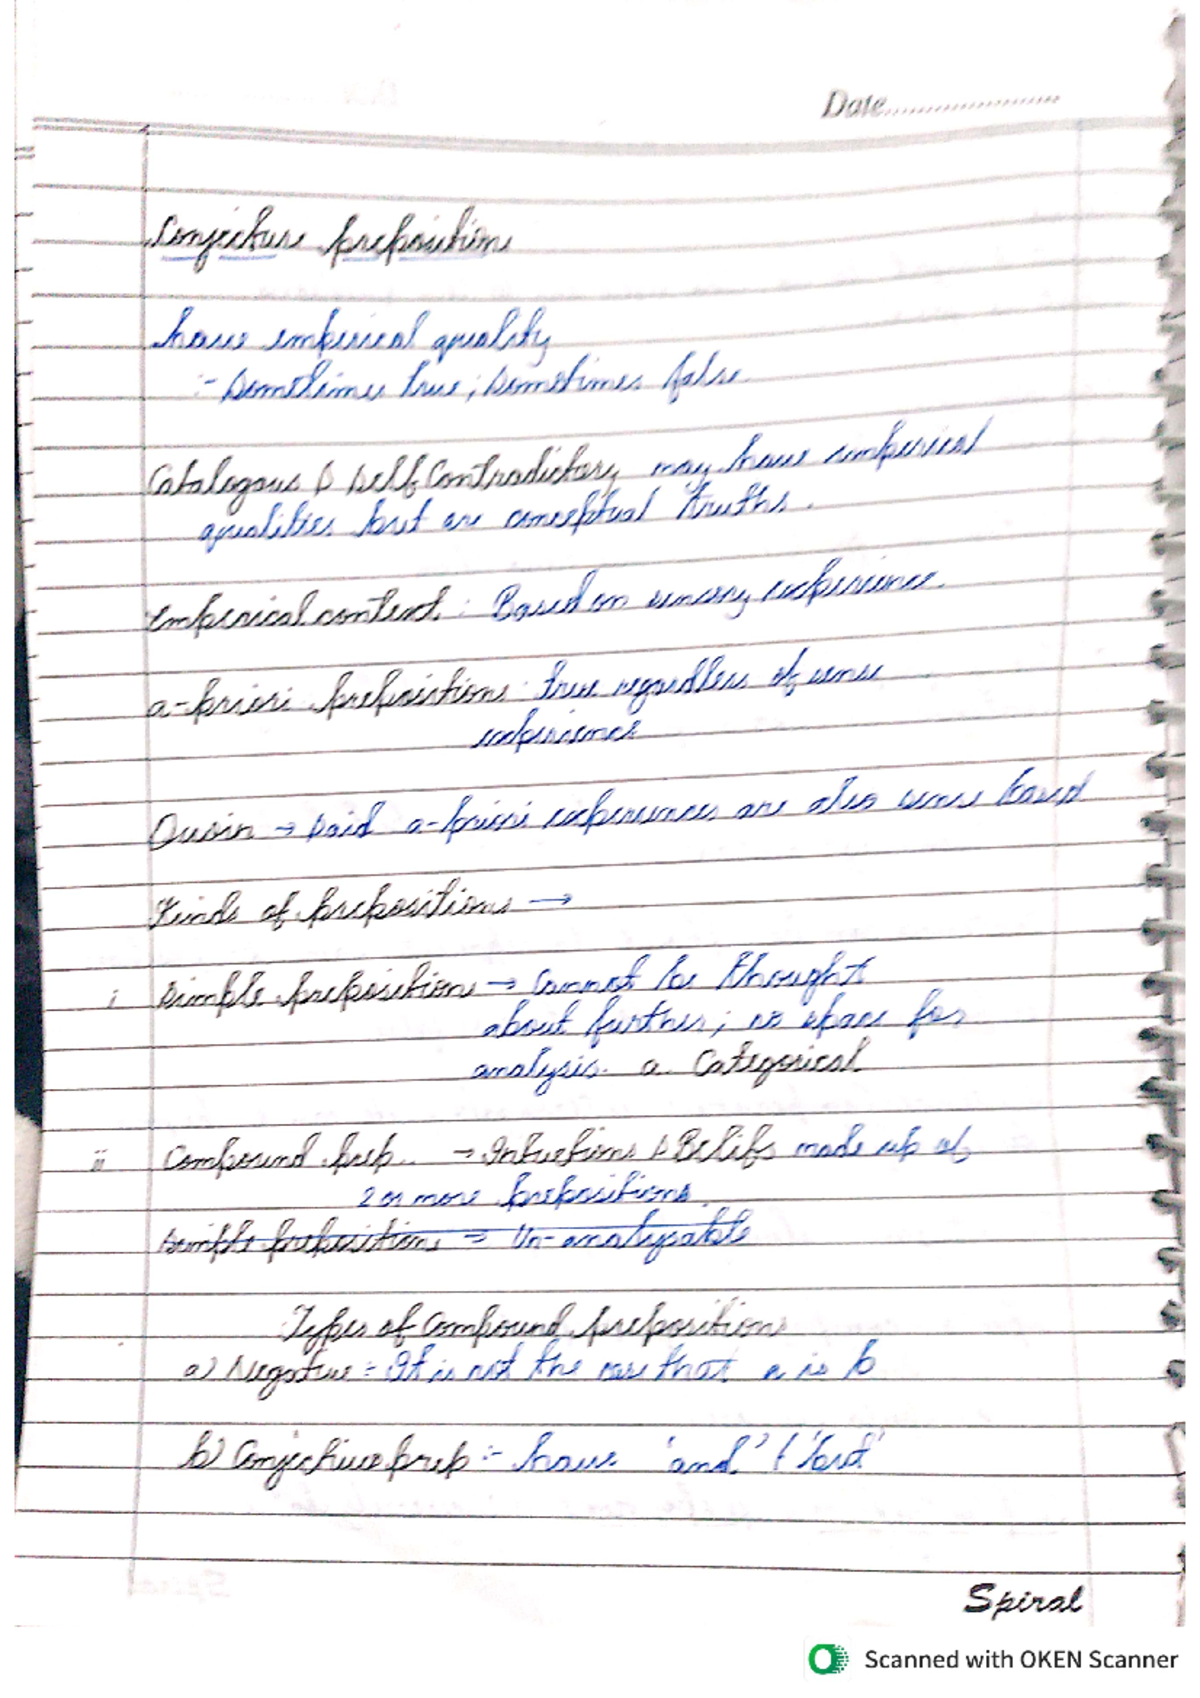 Date
Conjecture prepositions
have emperical quality
:- Sometimes true; Sometimes false
Catalogous & Self Contradictory may have emperical
qualities but are conceptual truths.
Emperical content: Based on sensory experience.
a-priori prepositions: true regardless of sense
experience
→ Said a-priori experiences are also sense based
Kinds of prepositions →
i Simple prepositions → Cannot be thought
about further; no space for
analysis. a. Categorical
ii Compound prep. → Intuetions & Belifs made up of
2 or more prepositions.
Simple prepositions → Un-analysable
Types of Compound prepositions
a) Negative :- It is not the case that a is b
b) Conjective prep :- have 'and' / 'but'
Spiral
Scanned with OKEN Scanner